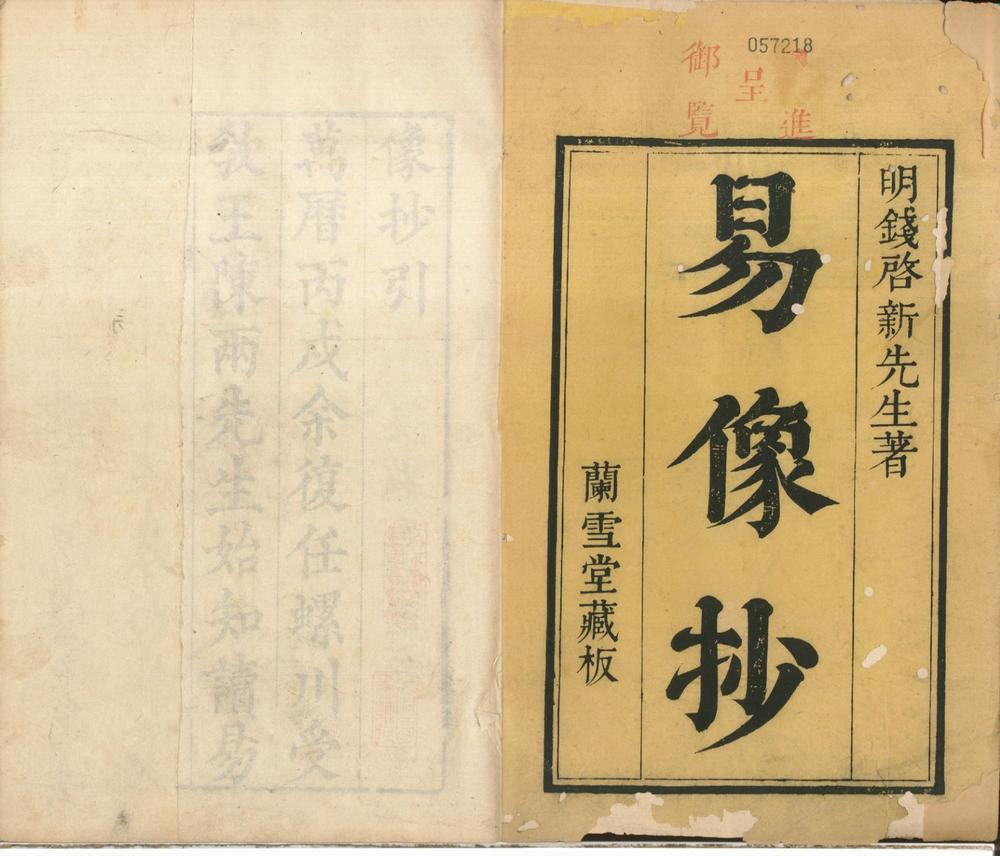 057218
進呈御覽
明錢啓新先生著
易像抄
蘭雪堂藏板
像抄引
萬曆丙戌余復任螺川受
教王陳兩先生始知讀易